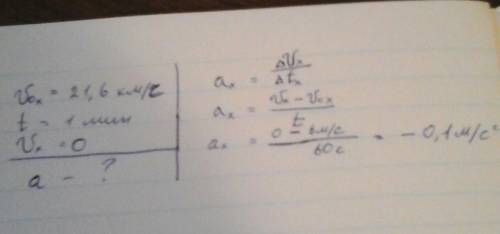 v₀ₓ = 21,6 км/с
t - 1 мин
vₓ = 0
a - ?
aₓ = Δvₓ / Δtₓ
aₓ = vₓ - v₀ₓ / t
aₓ = 0 - 6м/с / 60с = - 0,1 м/с²